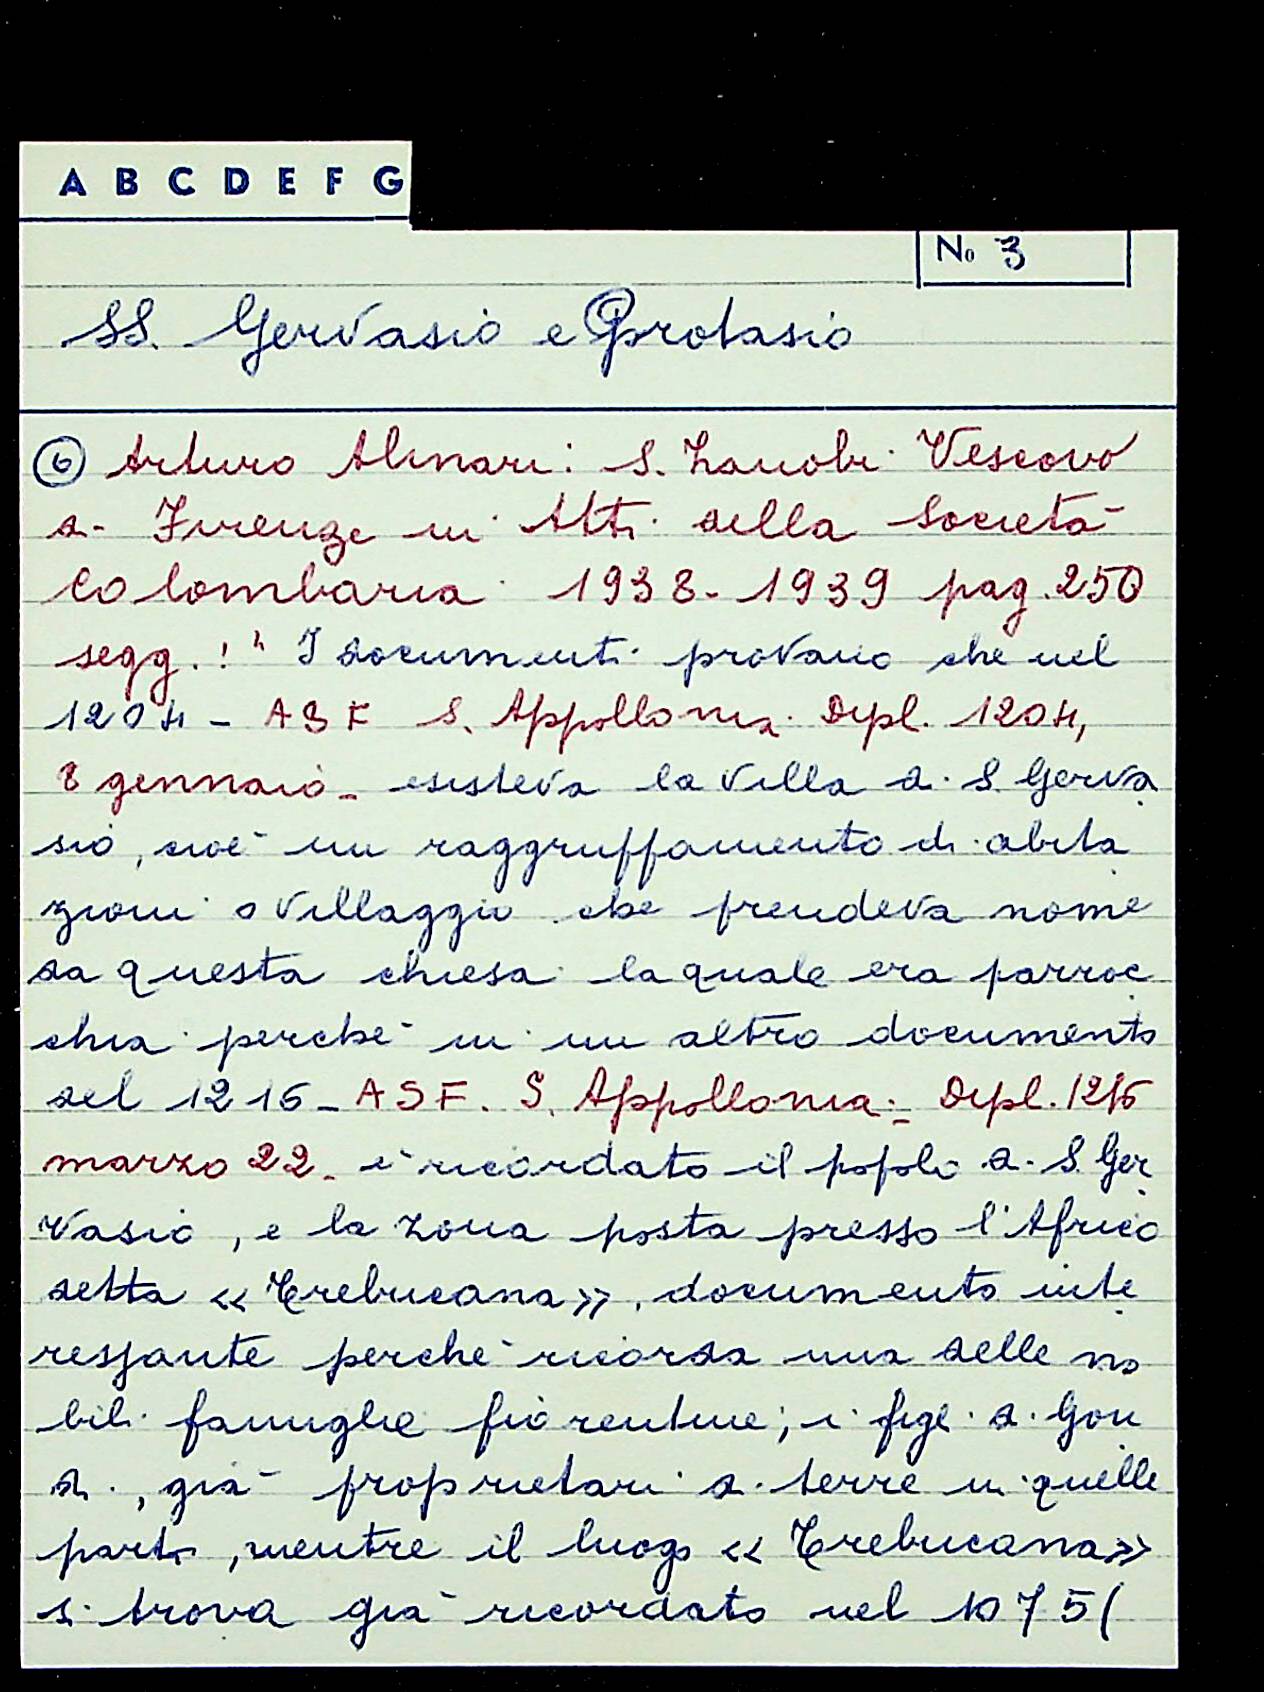 A B C D E F G
No 3
SS. Gervasio e Protasio
6 Arturo Alinari: S. Zanobi Vescovo
di Firenze in Atti della Società
Colombaria 1938-1939 pag. 250
segg. : " I documenti provano che nel
1204 - ASF S. Appollonia. Dipl. 1204,
8 gennaio - esisteva la villa di S. Gerva
sio, cioè un raggruppamento di abita
zioni o villaggio che prendeva nome
da questa chiesa la quale era parroc
chia perchè in un altro documento
del 1216 - ASF. S. Appollonia - Dipl. 1216
marzo 22 - è ricordato il popolo di S. Ger
vasio, e la zona posta presso l'Africo
detta « Trebucana », documento inte
ressante perchè ricorda una delle no
bili famiglie fiorentine; i figl. di Gon
di, già proprietari di terre in quelle
parti, mentre il luogo « Trebucana »
si trova già ricordato nel 1075 (